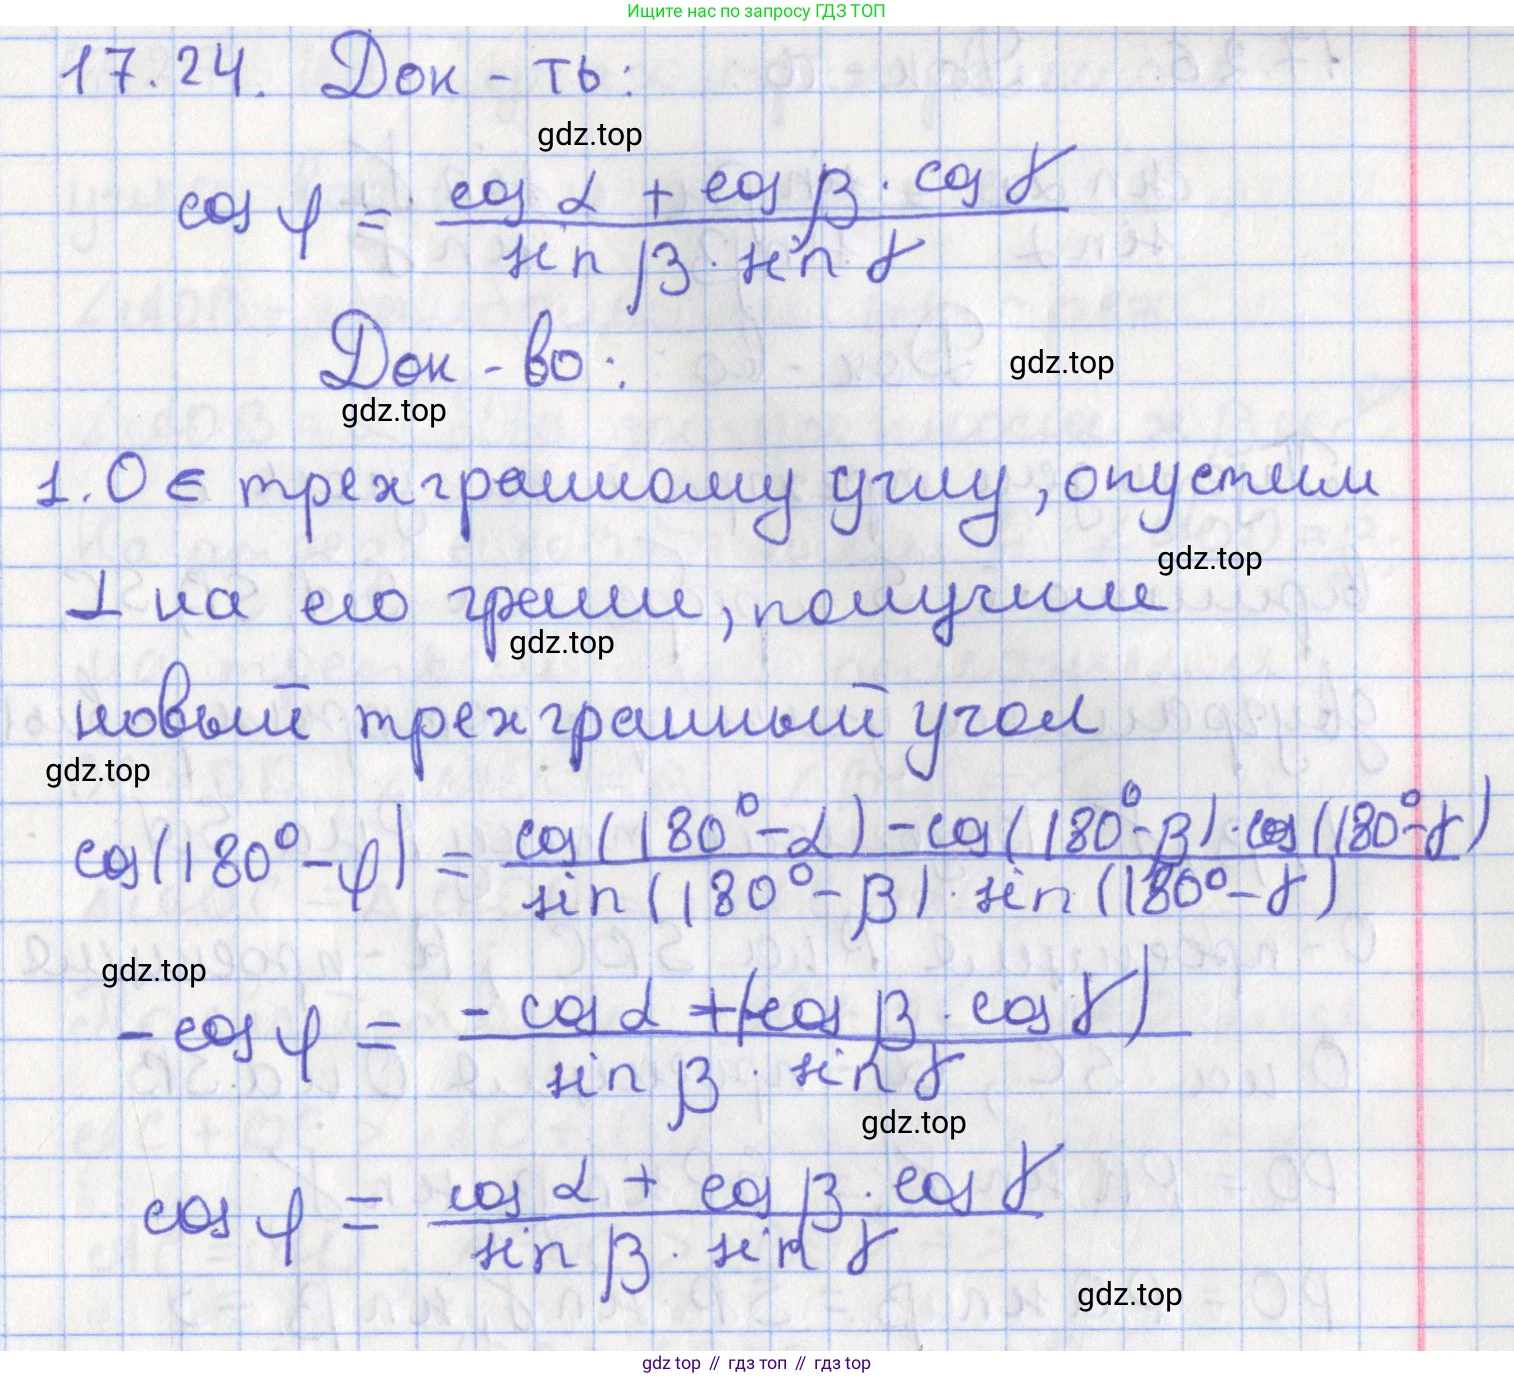 Ищите нас по запросу ГДЗ ТОП
17.24. Док-ть:
gdz.top
cos φ = (cos α + cos β · cos γ) / (sin β · sin γ)
Док-во:
gdz.top
gdz.top
1. O ∈ трехгранному углу, опустим
gdz.top
⊥ на его грани, получим
gdz.top
новый трехгранный угол
gdz.top
cos(180° - φ) = (cos(180° - α) - cos(180° - β) · cos(180° - γ)) / (sin(180° - β) · sin(180° - γ))
gdz.top
- cos φ = (- cos α + (-cos β · cos γ)) / (sin β · sin γ)
gdz.top
cos φ = (cos α + cos β · cos γ) / (sin β · sin γ)
gdz.top
gdz top // гдз топ // гдз top